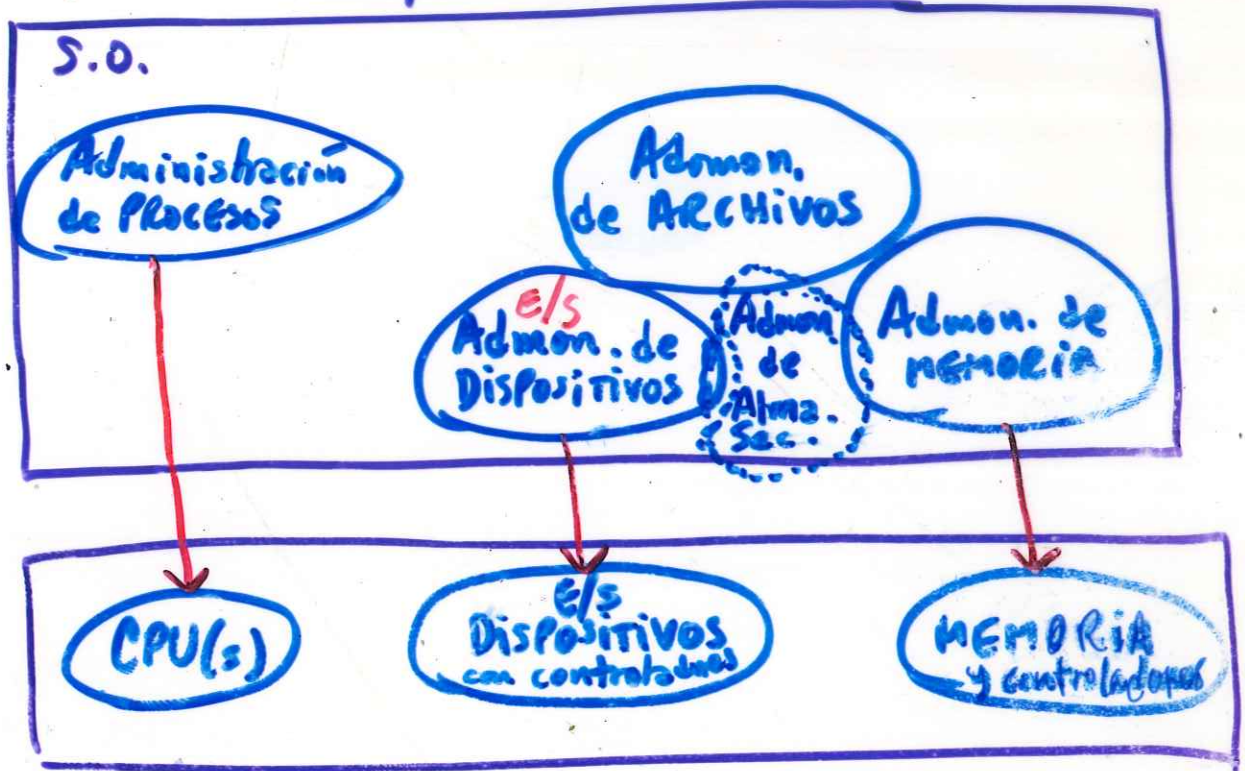 S.O.
Administración
de PROCESOS
Admon.
de ARCHIVOS
E/S
Admon. de
DISPOSITIVOS
Admon
de
Alma.
Sec.
Admon. de
MEMORIA
CPU(s)
E/S
DISPOSITIVOS
con controladores
MEMORIA
y controladores